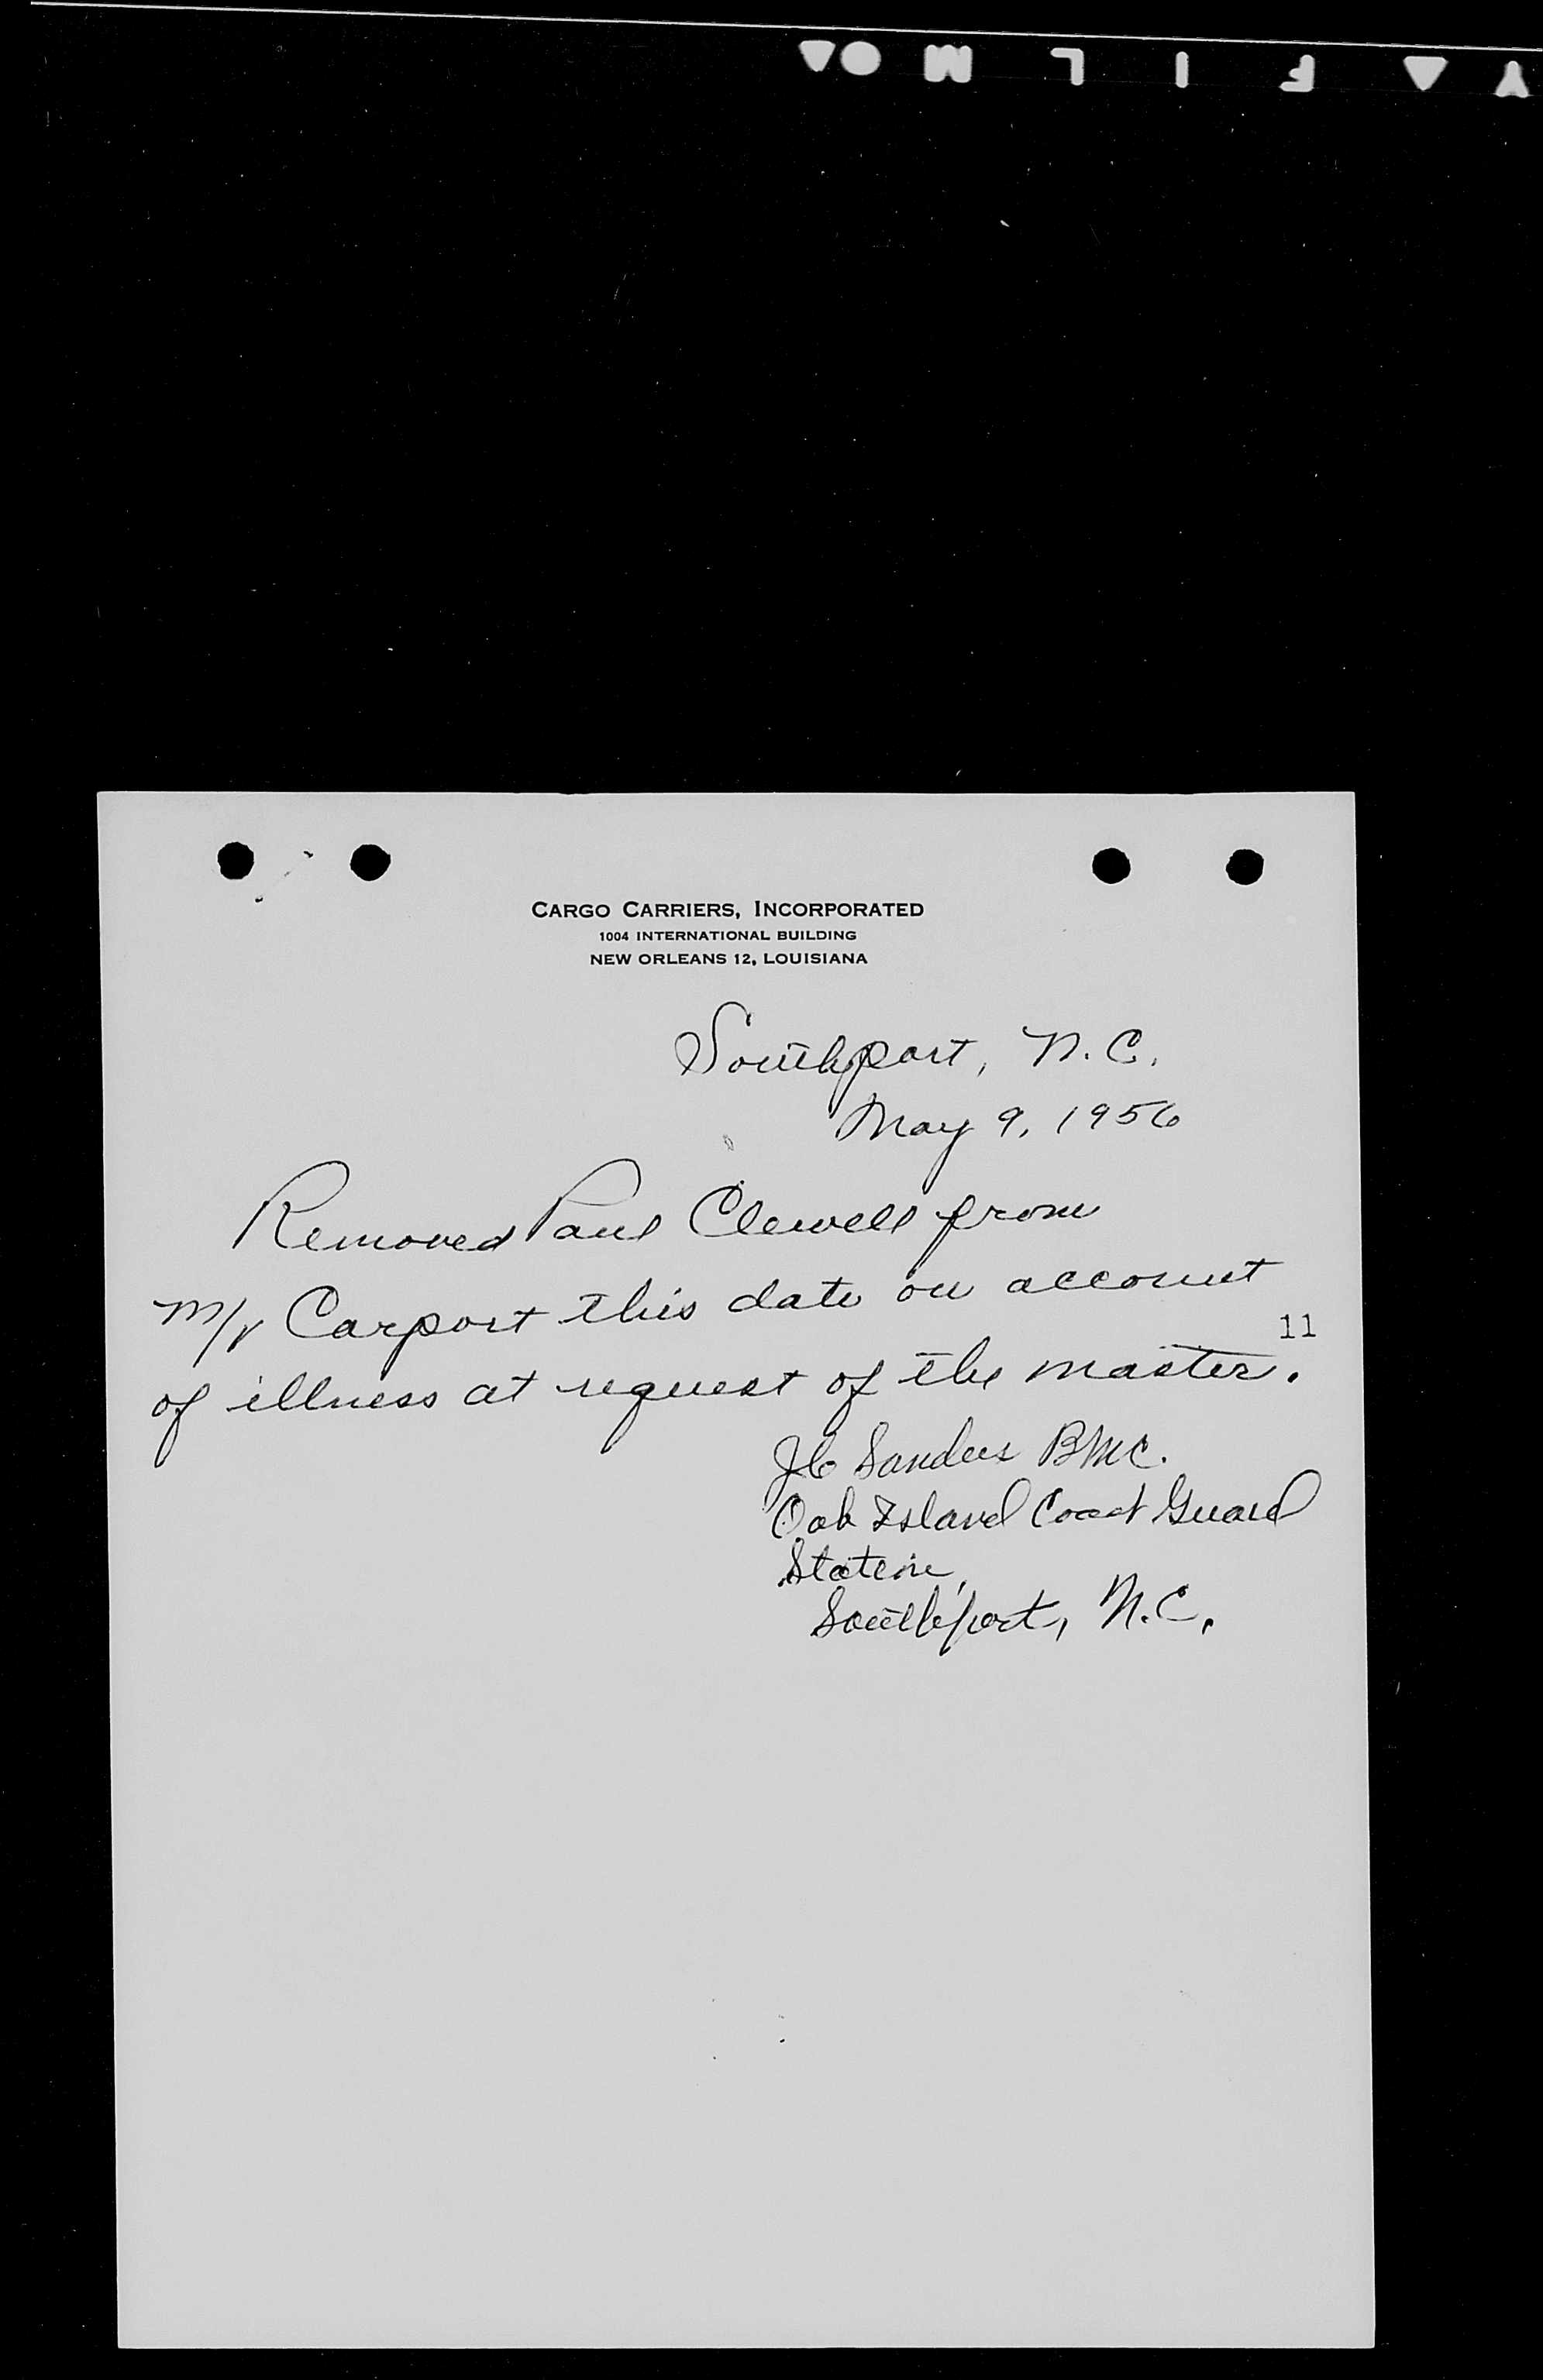 CARGO CARRIERS, INCORPORATED
1004 INTERNATIONAL BUILDING
NEW ORLEANS 12, LOUISIANA
Southport, N.C.
May 9, 1956
Removed Paul Clewell from
M/V Carport this date on account
11
of illness at request of the master.
JC Sanders BMC.
Oak Island Coast Guard
Station,
Southport, N.C.